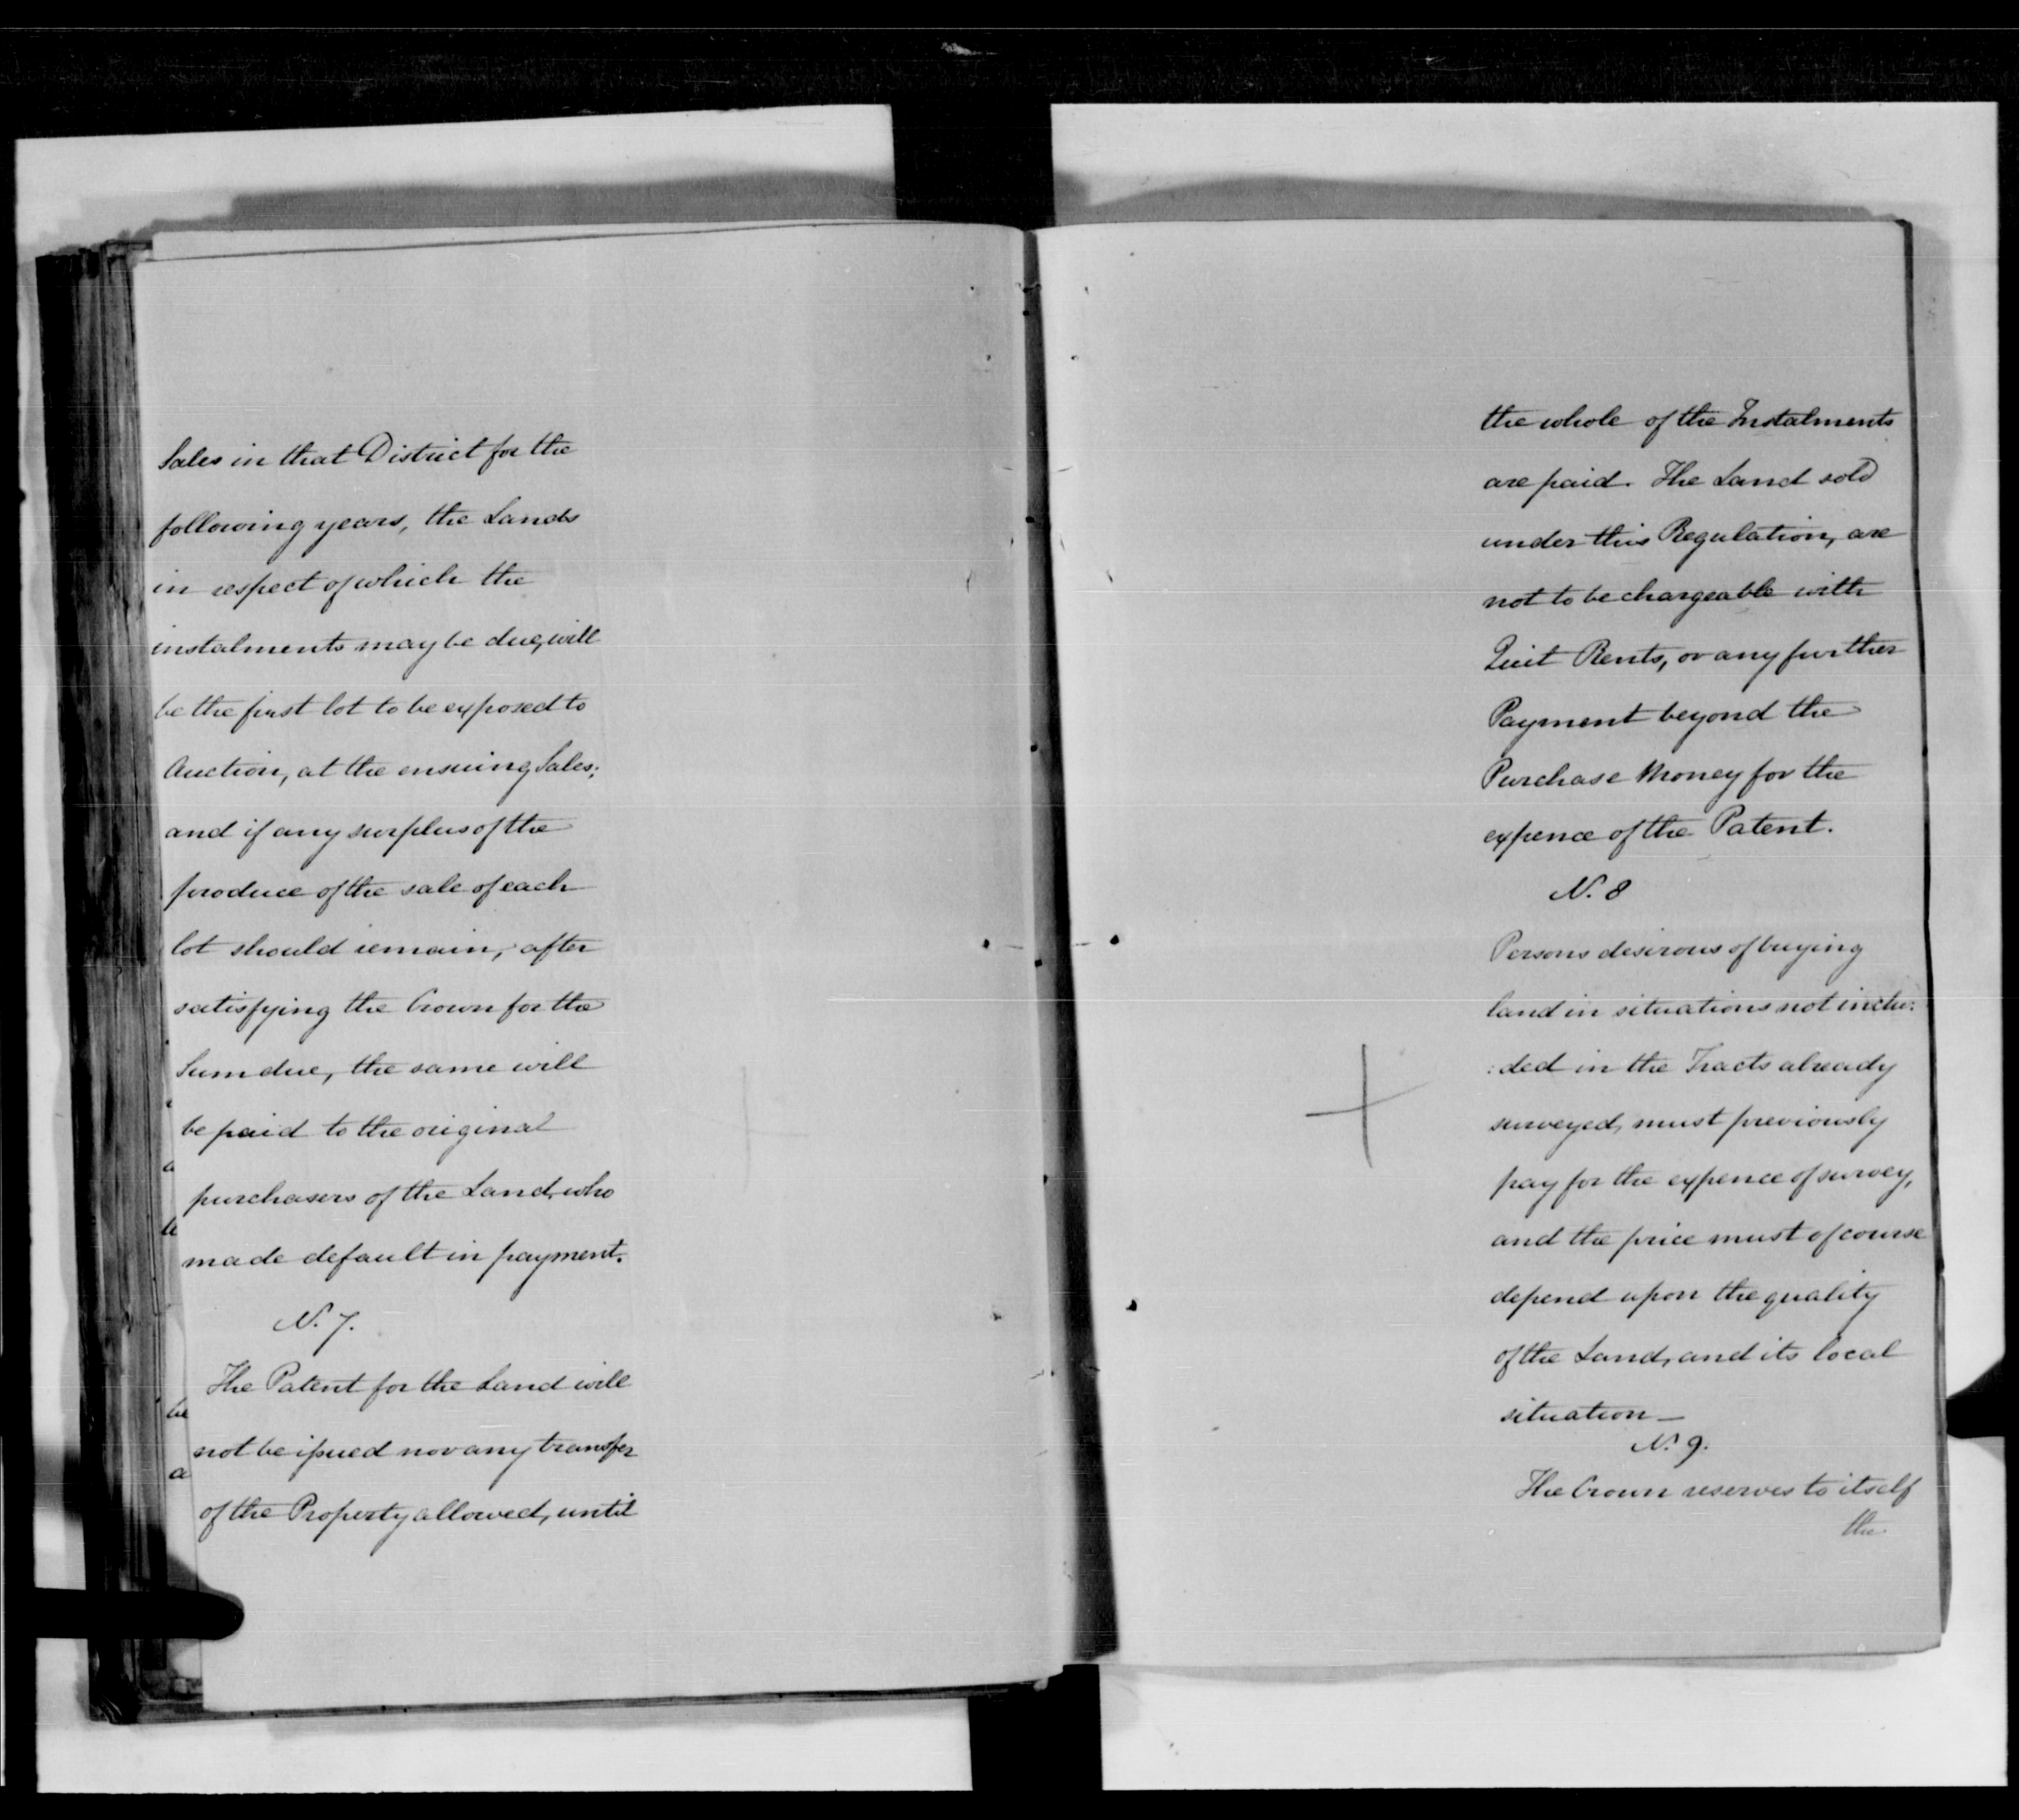 Sales in that District for the
following years, the Lands
in respect of which the
instalments may be due, will
be the first lot to be exposed to
Auction, at the ensuing Sales;
and if any surplus of the
produce of the sale of each
lot should remain, after
satisfying the Crown for the
Sum due, the same will
be paid to the original
purchasers of the Land, who
made default in payment.
N. 7.
The Patent for the Land will
not be issued nor any transfer
of the Property allowed, until
the whole of the Instalments
are paid. The Land sold
under this Regulation, are
not to be chargeable with
Quit Rents, or any further
Payment beyond the
Purchase Money for the
expence of the Patent.
N. 8
Persons desirous of buying
land in situations not inclu:
:ded in the Tracts already
surveyed, must previously
pay for the expence of survey,
and the price must of course
depend upon the quality
of the Land, and its local
situation —
N. 9.
The Crown reserves to itself
the